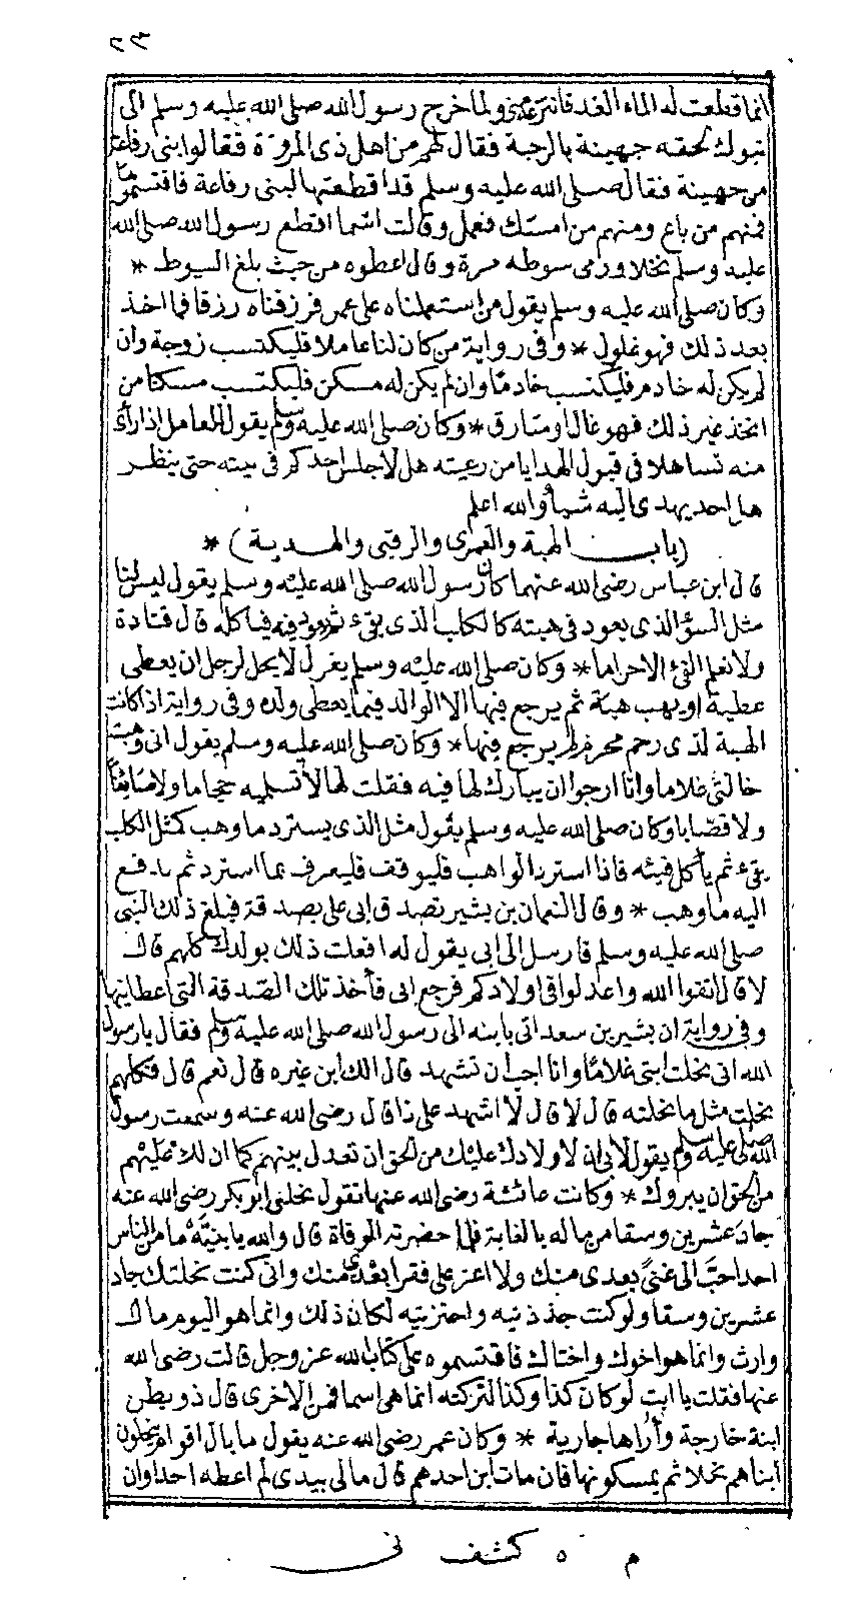 ٣٣
انما قطعت له الماء العذ فانتزعه منى ولما خرج رسول الله صلى الله عليه وسلم الى
تبوك لحقه جهينة بالرحبة فقال لهم من اهل ذى المروة فقالوا بنى رفاعة
من جهينة فقال صلى الله عليه وسلم قد اقطعتها لبنى رفاعة فاقتسموها
فمنهم من باع ومنهم من امسك فعمل وقالت اسما اقطع رسول الله صلى الله
عليه وسلم نخلا ورمى سوطه مرة وقال اعطوه من حيث بلغ السوط *
وكان صلى الله عليه وسلم يقول من استعملناه على عمر فرزقناه رزقا فما اخذ
بعد ذلك فهو غلول * وفى رواية من كان لنا عاملا فليكتسب زوجة وان
لم يكن له خادم فليكتسب خادما وان لم يكن له مسكن فليكتسب مسكنا من
اتخذ غير ذلك فهو غال او سارق * وكان صلى الله عليه وسلم يقول للعامل اذا رأى
منه تساهلا فى قبول الهدايا من رعيته هل لا جلس احدكم فى بيته حتى ينظر
هل احد يهدى اليه شيأ والله اعلم
(باب الهبة والعمرى والرقبى والهدية) *
قال ابن عباس رضى الله عنهما كان رسول الله صلى الله عليه وسلم يقول ليس لنا
مثل السوء الذى يعود فى هبته كالكلب الذى يقىء ثم يعود فيه فيأكله قال قتادة
ولا نعلم القىء الا حراما * وكان صلى الله عليه وسلم يقول لا يحل لرجل ان يعطى
عطية او يهب هبة ثم يرجع فيها الا الوالد فيما يعطى ولده وفى رواية اذا كانت
الهبة لذى رحم محرم لم يرجع فيها * وكان صلى الله عليه وسلم يقول انى وهبت
خالتى غلاما وانا ارجو ان يبارك لها فيه فقلت لها لا تسلميه حجاما ولا صايغا
ولا قصابا وكان صلى الله عليه وسلم يقول مثل الذى يسترد ما وهب كمثل الكلب
يقىء ثم يأكل قيئه فاذا استرد الواهب فليوقف فليعرف بما استرد ثم يدفع
اليه ما وهب * وقال النعمان بن بشير تصدق ابى على بصدقة فبلغ ذلك النبى
صلى الله عليه وسلم فارسل الى ابى يقول له افعلت ذلك بولدك كلهم قال
لا قال اتقوا الله واعدلوا فى اولادكم فرجع ابى فأخذ تلك الصدقة التى اعطانيها
وفى رواية ان بشير بن سعد اتى بابنه الى رسول الله صلى الله عليه وسلم فقال يا رسول
الله انى نحلت ابنى غلاما وانا احب ان تشهد قال الك ابن غيره قال نعم قال فكلهم
نحلت مثل ما نحلته قال لا قال لا اشهد على ذا قال رضى الله عنه وسمعت رسول
الله صلى عليه وسلم يقول لابى ان لاولادك عليك من الحق ان تعدل بينهم كما ان لك عليهم
من الحق ان يبروك * وكانت عائشة رضى الله عنها تقول نحلنى ابو بكر رضى الله عنه
جاد عشرين وسقا من ماله بالغابة فلما حضرته الوفاة قال والله يا بنية ما من الناس
احد احب الى غنى بعدى منك ولا اعز على فقرا بعدى منك وانى كنت نحلتك جاد
عشرين وسقا ولو كنت جذذتيه واحتزتيه لكان ذلك وانما هو اليوم مال
وارث وانما هو اخوك واختاك فاقتسموه على كتاب الله عز وجل قالت رضى الله
عنها فقلت يا ابت لو كان كذا وكذا لتركته انما هى اسما فمن الاخرى قال ذو بطن
ابنة خارجة وأراها جارية * وكان عمر رضى الله عنه يقول ما بال اقوام ينحلون
أبناهم نحلا ثم يمسكونها فان مات ابن احدهم قال مالى بيدى لم اعطه احدا وان
م ٥ كشف نى